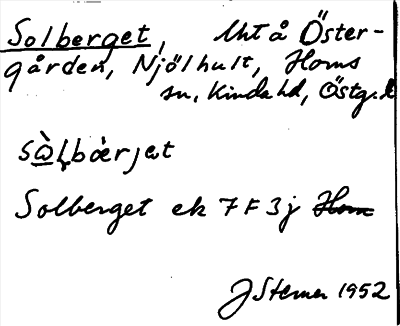 Solberget, Lht å Öster-
gården, Njölhult, Horns
sn, Kinda hd, Östg. l
sὼlbærjət
Solberget ek 7F3j Horn
J Sterner 1952